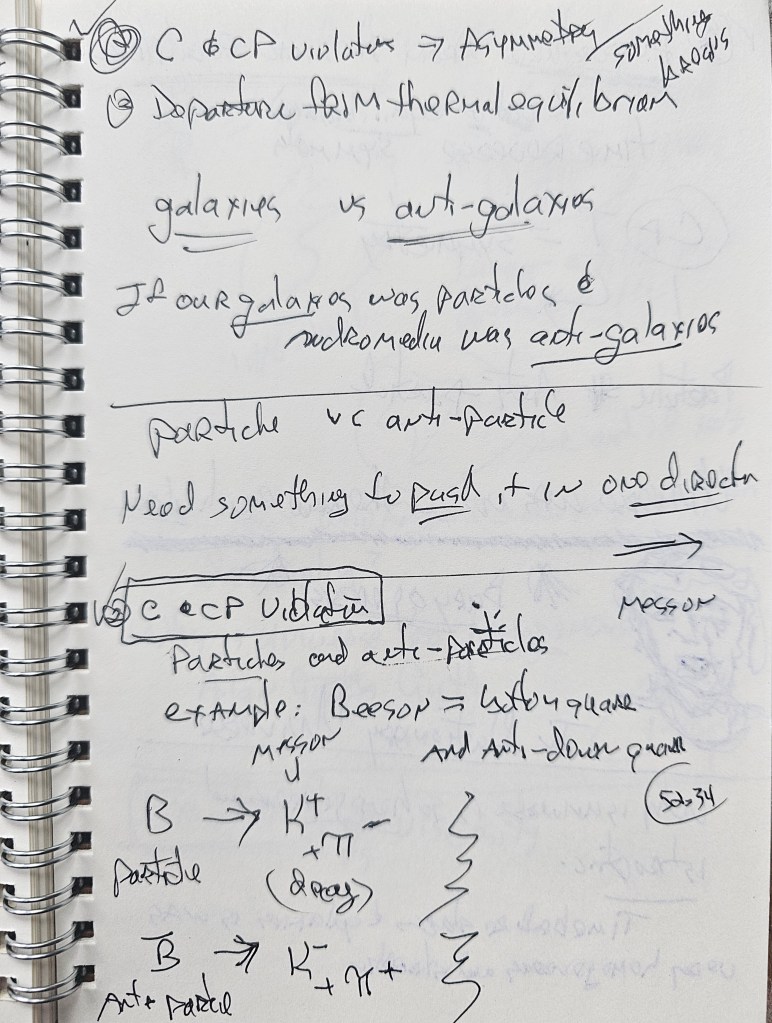 ② C & CP Violation → Asymmetry / something happens
③ Departure from thermal equilibrium
galaxies vs anti-galaxies
If our galaxies was particles &
andromedia was anti-galaxies
particle vs anti-particle
Need something to push it in one direction
→
② C & CP Violation
Messon
Particles and anti-particles
example: Beeson = bottom quark
Messon
And Anti-down quark
502.34
B → K+ + π-
particle (decay)
B̅ → K- + π+
Anti particle